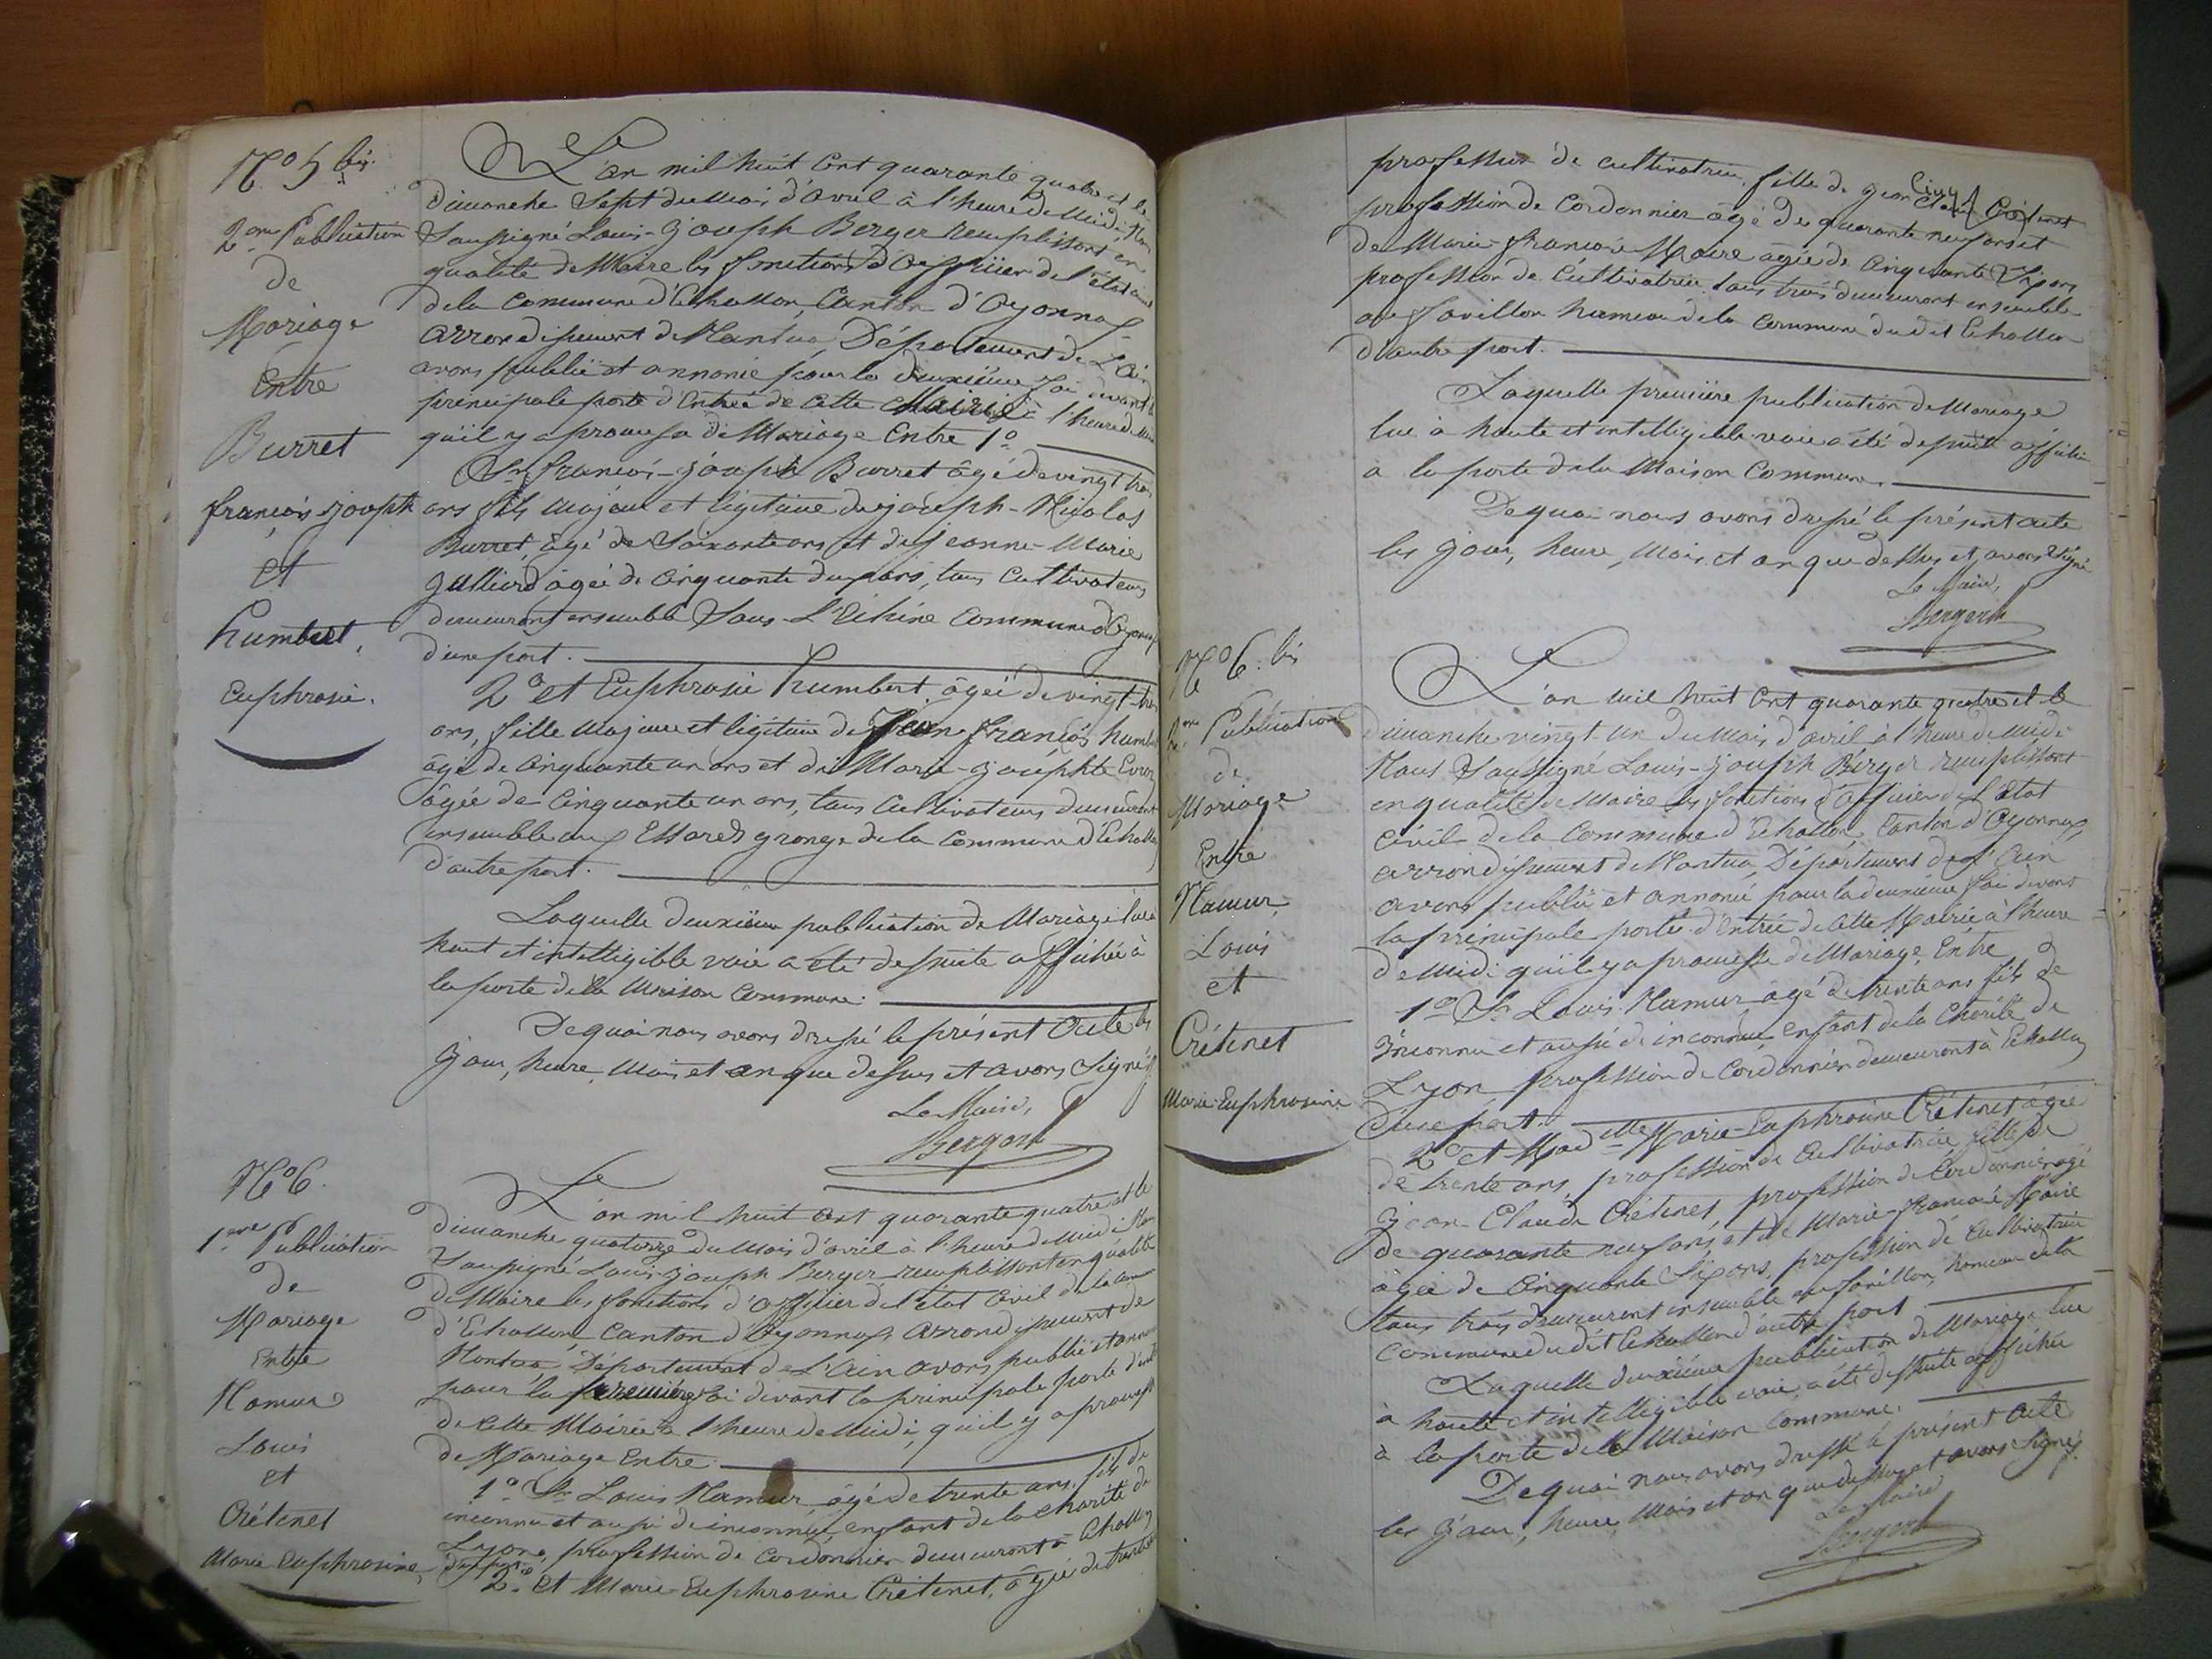 N.º 5 bis.
2.me Publication
de
Mariage
Entre
Burret
françois joseph
et
humbert,
Euphrasie.
L'an mil huit cent quarante quatre et le
dimanche Sept du Mois d'avril à l'heure de Midi, Nous
Soussigné Louis-Joseph Berger remplissant en
qualité de Maire les fonctions d'Officier de l'état civil
de la Commune d'Echallon, Canton d'Oyonnax
arrondissement de Nantua, Département de L'Ain
avons publié et annoncé pour la deuxième foi devant la
principale porte d'Entrée de cette Mairie à l'heure de Midi
qu'il y a promesse de Mariage Entre 1.º
Sr. françois-joseph Burret âgé de vingt trois
ans fils majeur et légitime de joseph-Nicolas
Burret, âgé de Soixante ans et de jeanne-Marie
âgée de cinquante deux ans, tous Cultivateurs
demeurant ensemble Sous-L'Echine Commune d'Oyonnax
d'une part.
2.º et Euphrasie humbert, âgée de vingt-trois
ans, fille majeure et légitime de Jean françois humbert
âgé de cinquante un ans et de Marie-josephte
âgée de Cinquante un ans, tous Cultivateurs demeurant
ensemble aux Essards grange de la commune d'Echallon
d'autre part.
Laquelle deuxième publication de Mariage lue à
haut et intelligible voie a été de suite affichée à
la porte de la Maison Commune.
De quoi nous avons dressé le présent Acte les
jour, heure, Mois et an que dessus et avons Signé
Le Maire,
N.º 6.
1.ere Publication
de
Mariage
Entre
Namur
Louis
et
Crétinet
Marie Euphrosine,
L'an mil huit cent quarante quatre et le
dimanche quatorze du Mois d'avril à l'heure de Midi Nous
Soussigné Louis-joseph Berger remplissant en qualité
de Maire les fonctions d'Officier de l'état Civil de la
d'Echallon, Canton d'Oyonnax arrondissement de
Nantua, Département de L'Ain avons publié et annoncé
pour la première foi devant la principale porte d'entrée
de cette Mairie à l'heure de Midi, qu'il y a promesse
de Mariage Entre.
1.º Sr. Louis Namur âgé de trente ans, fils de
inconnu et aussi de inconnue, enfant de la charité de
Lyon, profession de Cordonnier demeurant à Echallon
d'une part
2.º et Marie-Euphrosine Crétinet, âgée de trente ans
profession de cultivatrice, fille de jean Claude Crétinet
profession de Cordonnier âgé de quarante neuf ans et
de Marie-françoise Maire âgée de Cinquante Six ans
profession de Cultivatrice. tous trois demeurant ensemble
au favillon hameau de la commune du dit Echallon
d'autre part.
Laquelle première publication de Mariage
lue à haute et intelligible voie a été de suite affichée
à la porte de la Maison Commune.
De quoi nous avons dressé le présent acte
les jour, heure, Mois et an que dessus et avons Signé
Le Maire,
N.º 6. bis
2.me Publication
de
Mariage
Entre
Namur,
Louis
et
Crétinet
Marie-Euphrosine
L'an mil huit cent quarante quatre et le
dimanche vingt un du Mois d'avril à l'heure de Midi
Nous Soussigné Louis-joseph Berger remplissant
en qualité de Maire les fonctions d'officier de l'état
Civil de la Commune d'Echallon, Canton d'Oyonnax,
arrondissement de Nantua, Département de l'Ain
avons publié et annoncé pour la deuxième foi devant
la principale porte d'Entrée de cette Mairie à l'heure
de Midi qu'il y a promesse de Mariage Entre
1.º Sr. Louis Namur âgé de trente ans fils de
inconnu et aussi de inconnue, enfant de la Charité de
Lyon, profession de Cordonnier demeurant à Echallon
d'une part.
2.º et Madelle Marie-Euphrosine Crétinet âgée
de trente ans, profession de Cultivatrice fille de
jean-Claude Crétinet, profession de Cordonnier âgé
de quarante neuf ans, et de Marie-françoise Maire
âgée de Cinquante Six ans, profession de Cultivatrice
tous trois demeurant ensemble au favillon, hameau de la
commune du dit Echallon d'autre part.
Laquelle deuxième publication de Mariage lue
à haute et intelligible voie, a été de suite affichée
à la porte de la Maison Commune.
De quoi nous avons dressé le présent acte
les jour, heure, Mois et an que dessus et avons Signé.
Le Maire